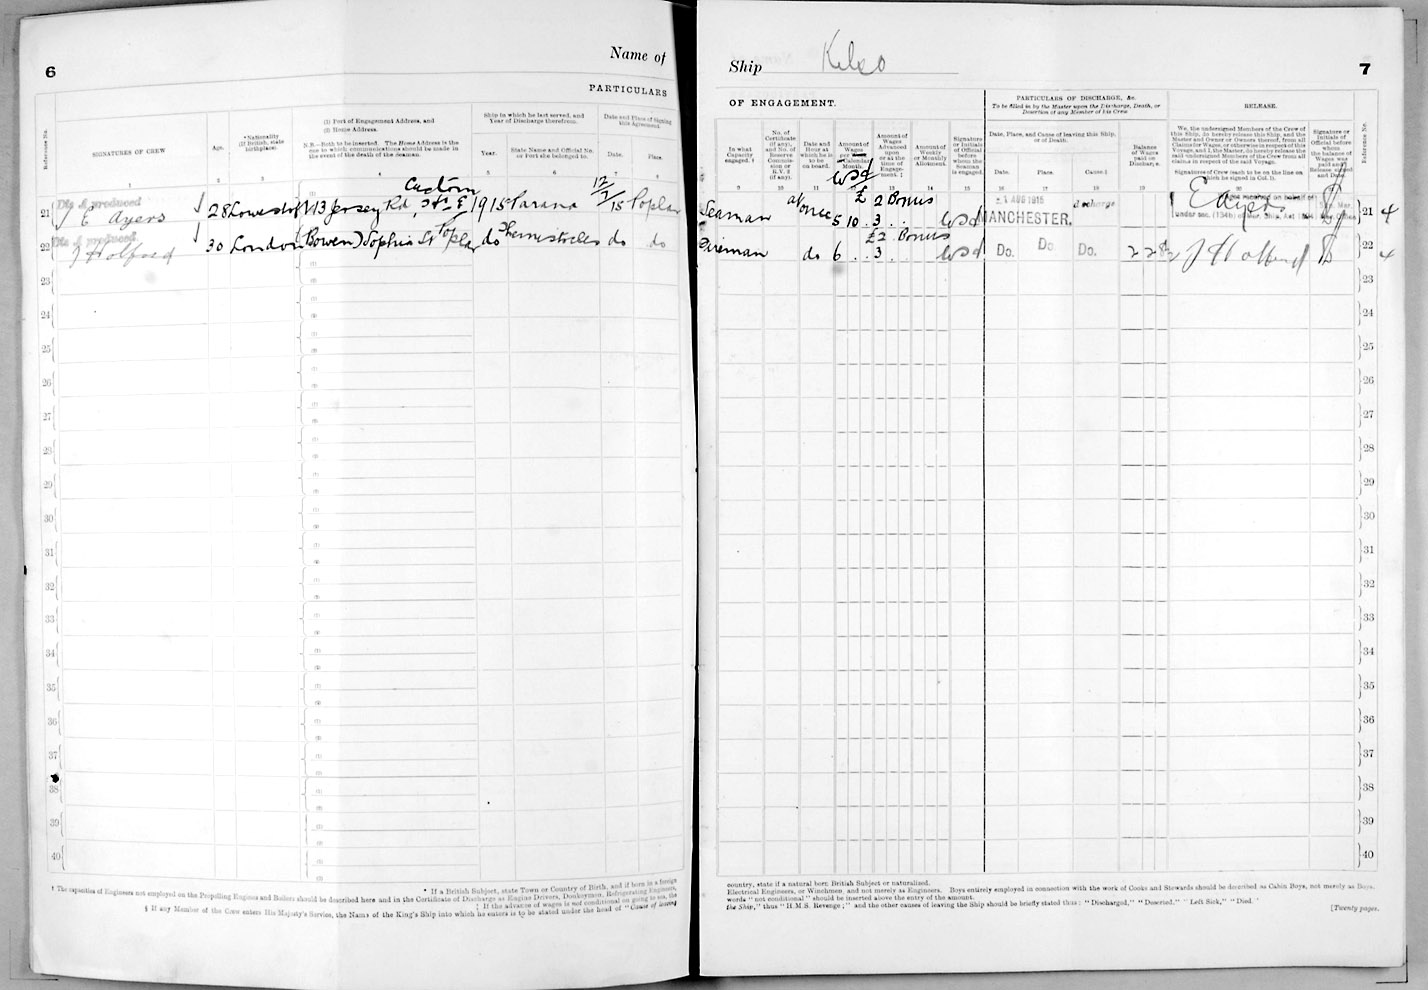 6
Name of
PARTICULARS
Reference No.
SIGNATURES OF CREW
Age.
*Nationality
(If British, state
birthplace).
(1) Port of Engagement Address, and
(2) Home Address.
N.B.—Both to be inserted. The Home Address is the
one to which communications should be made in
the event of the death of the seaman.
Ship in which he last served, and
Year of Discharge therefrom.
Year.
State Name and Official No.
or Port she belonged to.
Date and Place of Signing
this Agreement.
Date.
Place.
1 2 3 4 5 6 7 8
Dis A produced
21 E Ayers 28 Lowestoft 113 Jersey Rd, Custom 1915 Parana 12/7/15 Poplar
Dis A produced
22 J Holford 30 London (Bowen) Sophia St Poplar do Themistocles do do
23
24
25
26
27
28
29
30
31
32
33
34
35
36
37
38
39
40
* If a British Subject, state Town or Country of Birth, and if born in a foreign
† The capacities of Engineers not employed on the Propelling Engines and Boilers should be described here and in the Certificate of Discharge as Engine Drivers, Donkeymen, Refrigerating Engineers,
‡ If the advance of wages is not conditional on going to sea, the
§ If any Member of the Crew enters His Majesty's Service, the Name of the King's Ship into which he enters is to be stated under the head of "Cause of leaving
Ship Kelso
7
OF ENGAGEMENT.
PARTICULARS OF DISCHARGE, &c.
To be filled in by the Master upon the Discharge, Death, or
Desertion of any Member of his Crew
RELEASE.
In what
Capacity
engaged. †
No. of
Certificate
(if any),
and No. of
Reserve
Commis-
sion or
R.V. 2
(if any).
Date and
Hour at
which he is
to be
on board.
Amount of
Wages
per
Calendar
Month.
Amount of
Wages
Advanced
upon
or at the
time of
Engage-
ment. ‡
Amount of
Weekly
or Monthly
Allotment.
Signature
or Initials
of Official
before
whom the
Seaman
is engaged.
Date, Place, and Cause of leaving this Ship,
or of Death.
Date.
Place.
Cause.§
Balance
of Wages
paid on
Discharge.
We, the undersigned Members of the Crew of
this Ship, do hereby release this Ship, and the
Master and Owner or Owners thereof, from all
Claims for Wages, or otherwise in respect of this
Voyage, and I, the Master, do hereby release the
said undersigned Members of the Crew from all
claims in respect of the said Voyage.
Signatures of Crew (each to be on the line on
which he signed in Col. 1).
Signature or
Initials of
Official before
whom
the balance of
Wages was
paid and
Release signed
and Date.
Reference No.
9 10 11 12 13 14 15 16 17 18 19 20
£2 Bonus
Seaman at once 5 10 3 AUG 1915 MANCHESTER. discharge E Ayers 21 4
£2 Bonus
Fireman do 6 3 Do. Do Do. 2 2 J Holford 22 4
23
24
25
26
27
28
29
30
31
32
33
34
35
36
37
38
39
40
country, state if a natural born British Subject or naturalized.
Electrical Engineers, or Winchmen, and not merely as Engineers. Boys entirely employed in connection with the work of Cooks and Stewards should be described as Cabin Boys, not merely as Boys.
words "not conditional" should be inserted above the entry of the amount.
the Ship," thus "H.M.S. Revenge;" and the other causes of leaving the Ship should be briefly stated thus: "Discharged," "Deserted," "Left Sick," "Died."
[Twenty pages.